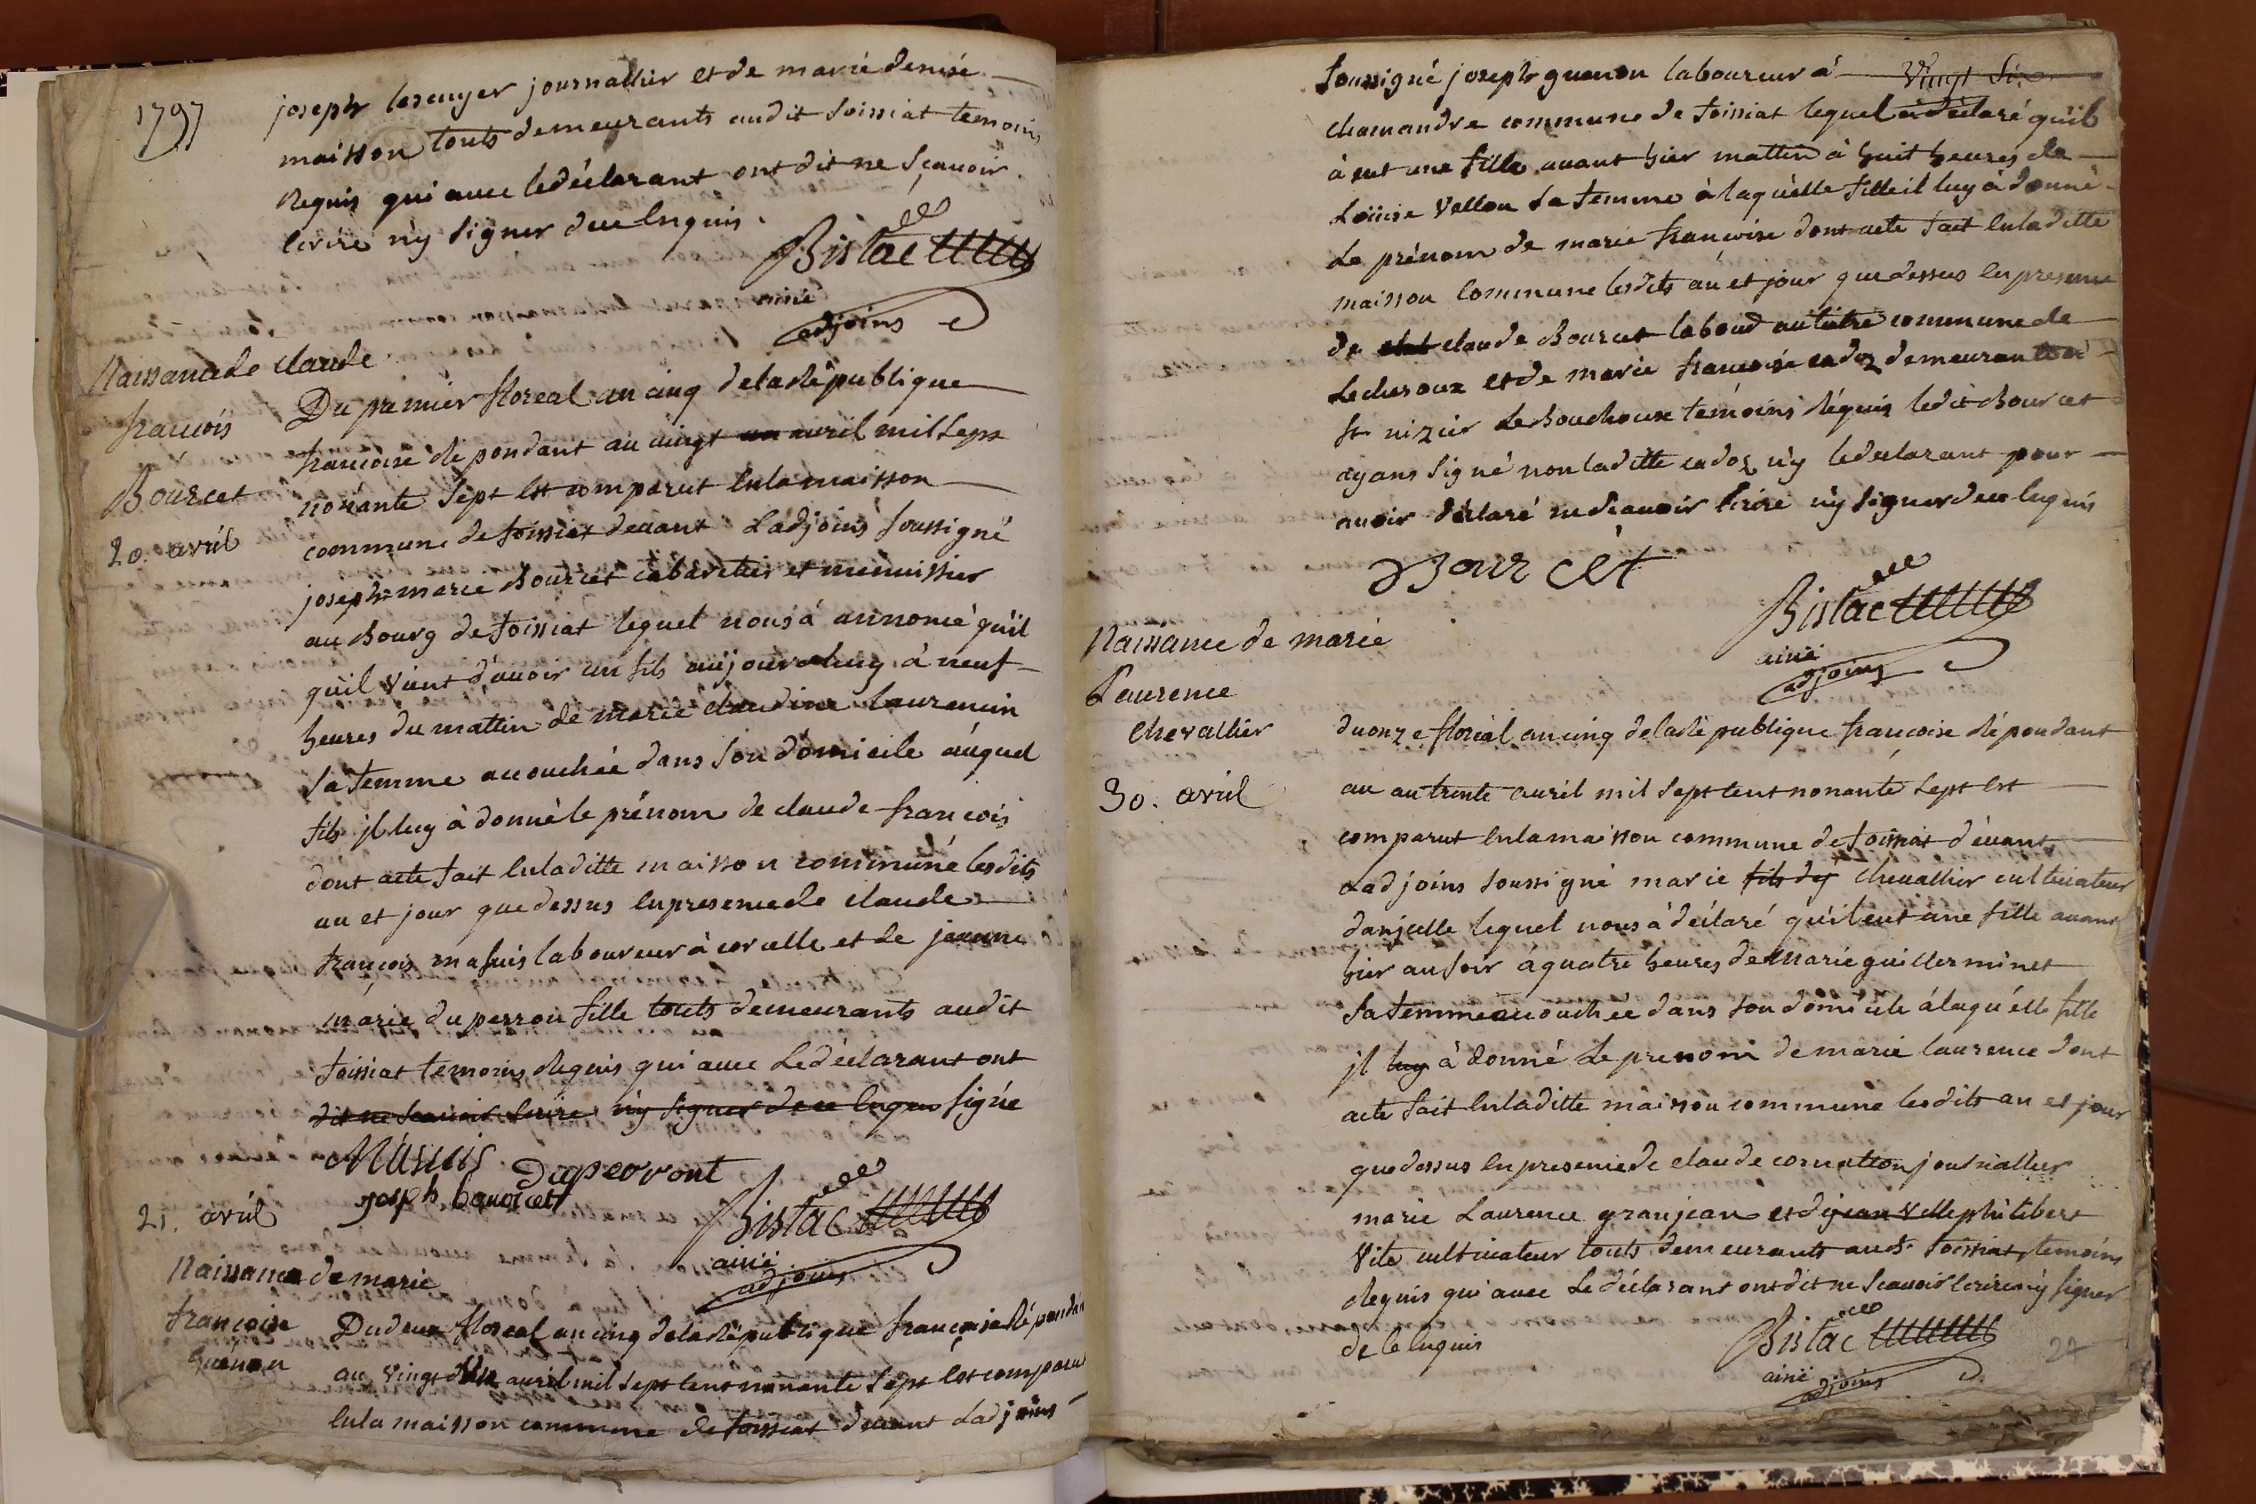 1797
joseph lescuyer journallier et de marie denise
maisson touts demeurants audit toissiat temoins
Requis qui avec le déclarant ont dit ne sçavoir
lcrire n'y signer de ce Enquis.
Bistac
ainé
adjoins
Naissance de claude
françois
Bourcet
20. avril
Du premier floreal an cinq de la République
francoise répondant au vingt avril mil sept
nonante sept Est comparut En la maisson
commune de toissiat devant L'adjoins soussigné
joseph marie Bourcet cabaretier et menuissier
au Bourg de toissiat lequel nous à annoncé qu'il
qu'il vient d'avoir un fils aujourd'huy à neuf
heures du mattin de marie claudine laurencin
sa femme accouchée dans son domicile auquel
fils jl luy à donné le prénom de claude françois
dont acte fait En la ditte maisson commune lesdits
an et jour que dessus En presence de claude
françois masuis laboureur à corcelle et de jeanne
marie duperron fille touts demeurants audit
toissiat temoins Requis qui avec Le déclarant ont
dit ne scavoir Ecrire n'y signer de ce Enquis signé
Masuis Duperront
joseph bourcet
Bistac
ainé
adjoins
21. avril
Naissance de marie
francoise
Guenon
Du deux floreal an cinq de la République françoise Répondant
au vingt un avril mil sept cent nonante sept Est comparut
En la maisson commune de toissiat devant L'adjoins
Soussigné joseph guenon laboureur à vingt six
chamandre commune de toissiat lequel a déclaré qu'il
à eut une fille avant hier mattin à huit heures de
Loüise Vallon sa femme à laquelle fille il luy à donné
Le prénom de marie françoise dont acte fait En la ditte
maisson commune lesdits an et jour que dessus En presence
de claude Bourcet commune de
et de marie francoise cadoz
st nizier Le Bouchoux temoins Réquis ledit Bourcet
ayans signé non la ditte cadoz n'y le déclarant pour
avoir déclaré ne scavoir Ecrire n'y signer de ce Enquis
Bour cet
Bistac
ainé
adjoins
Naissance de marie
Laurence
chevallier
30. avril
du onze floréal an cinq de la République francoise Répondant
au au trente avril mil sept cent nonante sept Est
comparut En la maisson commune de toissiat dévant
L'adjoins soussigné marie fils de chevallier cultivateur
lequel nous à déclaré qu'il eut une fille avant
hier au soir à quatre heures de Marie guillerminet
sa femme accouchée dans son domicile à laquelle fille
jl luy à donné Le prenom de marie laurence dont
acte fait En la ditte maisson commune lesdits an et jour
que dessus En presence de claude journallier
marie Laurence granjean et de jean Ville philibert
Vite cultivateur touts demeurants aud. toissiat temoins
Requis qui avec Le déclarant ont dit ne scavoir Ecrire n'y signer
de ce Enquis
Bistac
ainé
adjoins
27